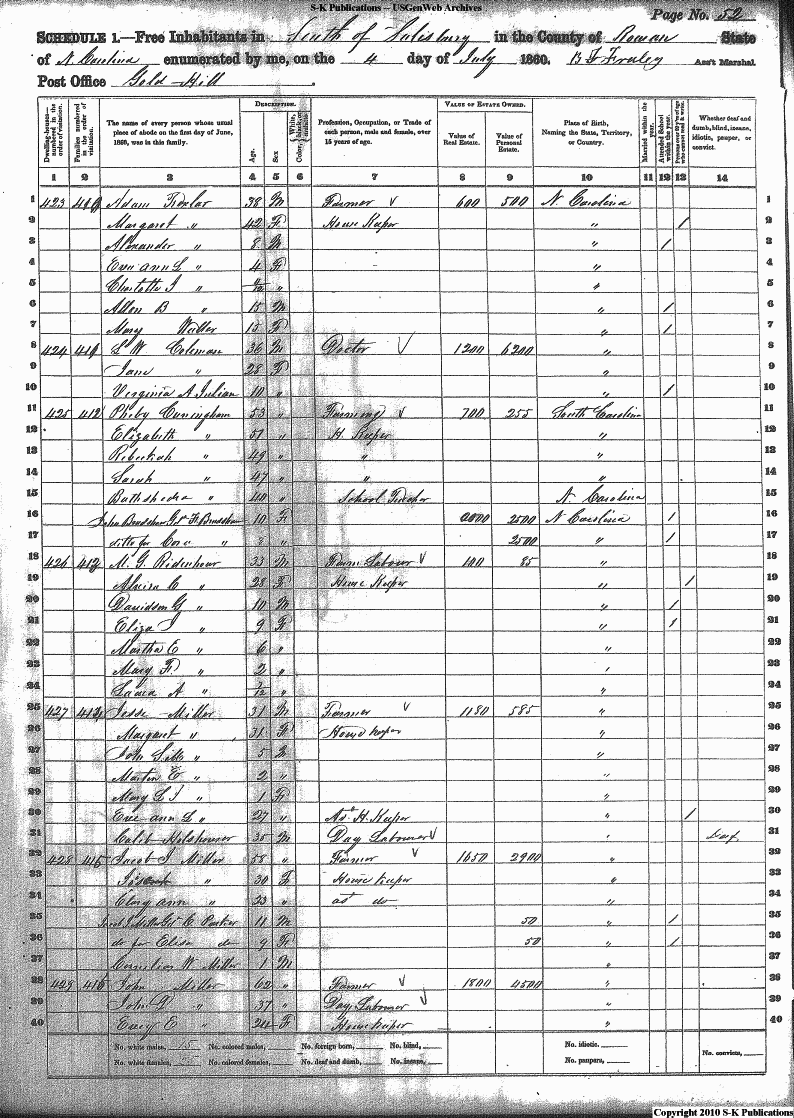 S-K Publications -- USGenWeb Archives
Page No. 52
SCHEDULE 1.—Free Inhabitants in South of Salisbury in the County of Rowan State
of N Carolina enumerated by me, on the 4 day of July 1860. B F Fraley Ass't Marshal.
Post Office Gold Hill
Dwelling-houses—numbered in the order of visitation. Families numbered in the order of visitation. The name of every person whose usual place of abode on the first day of June, 1860, was in this family. DESCRIPTION. Age. Sex Profession, Occupation, or Trade of each person, male and female, over 15 years of age. VALUE OF ESTATE OWNED. Value of Real Estate. Value of Personal Estate. Place of Birth, Naming the State, Territory, or Country. Married within the year. Attended School within the year. Whether deaf and dumb, blind, insane, idiotic, pauper, or convict.
1 2 3 4 5 6 7 8 9 10 11 12 13 14
1 423 Adam 38 M Farmer V 600 500 N. Carolina 1
2 Margaret " 42 F House Keeper " / 2
3 Alexander " 8 M " / 3
4 Eve ann L " 4 F " 4
5 Charlotte J " " " 5
6 B " 15 M " / 6
7 Mary 15 F " / 7
8 424 411 L W Coleman 36 M Doctor V 1200 6200 " 8
9 Jane " 28 F " 9
10 Virginia A Julian 10 " " / 10
11 425 412 Pheby Cuningham 53 " Farming V 700 255 South Carolina 11
12 Elizabeth " 51 " H. Keeper " 12
13 Rebeckah " 49 " " " 13
14 Sarah " 47 " " " 14
15 " 40 " School Teacher N. Carolina 15
16 John Bradshaw Gd F. Bradshaw 10 F 2000 2500 N Carolina / 16
17 ditto for Cora " " 2500 " / 17
18 426 M. G. Ridenhour 33 M Farm Labour V 100 85 " 18
19 C " 28 F House Keeper " / 19
20 Davidson G " 10 M " / 20
21 Eliza J " 9 F " / 21
22 Martha E " 6 " " 22
23 Mary F. " 2 " 23
24 Laura A " " " 24
25 427 Jesse Miller 31 M Farmer V 1180 585 " 25
26 Margaret " 31 F House keeper " 26
27 John " 5 " 27
28 Martin E " 2 " " 28
29 Mary L J " 1 F " 29
30 Eve ann L " 27 " As H. Keeper " / 30
31 Calib Holshouser 35 M Day Labourer V Deaf 31
32 428 415 Jacob J Miller 58 " Farmer V 1650 2900 " 32
33 " 30 F House keeper " 33
34 ann " 23 " as do " 34
35 Jacob J Miller Gd C 11 M 50 " / 35
36 do for Eliza do 9 F 50 " / 36
37 Cornelius W Miller 1 M " 37
38 429 416 John Miller 62 " Farmer V 1800 4500 " 38
39 John D " 37 " Day Labourer V " 39
40 E " 24 F House keeper " 40
No. white males, 15 No. colored males, No. foreign born, No. blind, No. idiotic,
No. white females, 25 No. colored females, No. deaf and dumb, No. insane, No. paupers, No. convicts,
Copyright 2010 S-K Publications